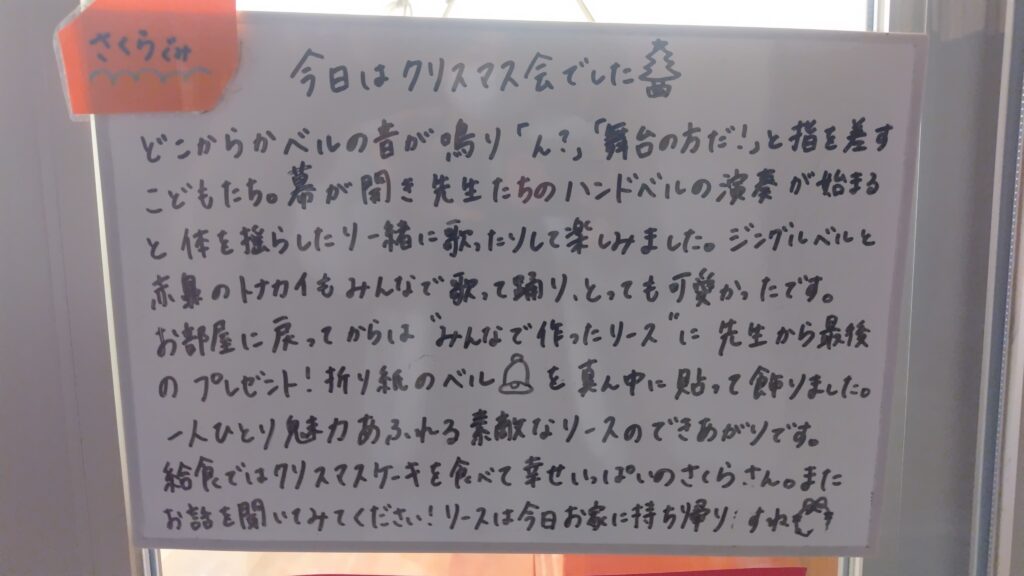 さくらぐみ
今日はクリスマス会でした
どこからかベルの音が鳴り「ん?」「舞台の方だ!」と指を差す
こどもたち。幕が開き先生たちのハンドベルの演奏が始まる
と体を揺らしたり一緒に歌ったりして楽しみました。ジングルベルと
赤鼻のトナカイもみんなで歌って踊り、とっても可愛かったです。
お部屋に戻ってからは"みんなで作ったリース"に先生から最後
のプレゼント!折り紙のベルを真ん中に貼って飾りました。
一人ひとり魅力あふれる素敵なリースのできあがりです。
給食ではクリスマスケーキを食べて幸せいっぱいのさくらさん。また
お話を聞いてみてください!リースは今日お家に持ち帰り すね